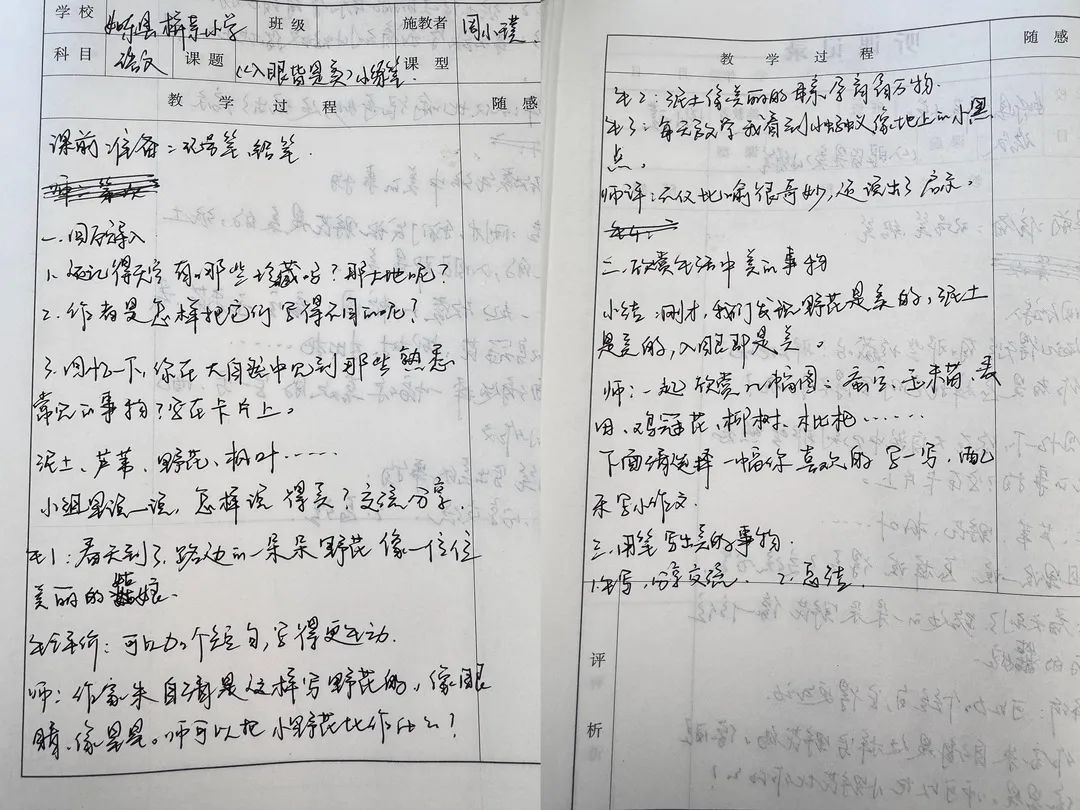 学校 如东县栟茶小学 班级 施教者 周小璞
科目 语文 课题 《入眼皆是美》小练笔 课型
教学过程 随感
课前准备：双号笔、铅笔.
一.回顾导入
1.还记得天空有哪些珍藏吗？那大地呢？
2.作者是怎样把它们写得不同的呢？
3.回忆一下，你在大自然中见到哪些熟悉
常见的事物？写在卡片上。
泥土、芦苇、野花、树叶……
小组里说一说，怎样说得美？交流分享.
生1：春天到了，路边的一朵朵野花像一位位
美丽的姑娘.
生评价：可以加个短句，写得更生动.
师：作家朱自清是这样写野花的，像眼
睛、像星星。师可以把小野花比作什么？
教学过程 随感
生2：泥土像美丽的母亲，孕育着万物.
生3：每天放学我看到小蚂蚁像地上的小黑
点。
师评：不仅比喻很奇妙，还读出了启示。
二.欣赏生活中美的事物
小结：刚才，我们发现野花是美的，泥土
是美的，入眼即是美。
师：一起欣赏几幅图：夜空、玉米苗、农
田、鸡冠花、柳树、枇杷……
下面请选择一幅你喜欢的写一写，配
乐写小作文.
三.用笔写出美的事物.
1.生写，分享交流. 2.总结.
评
析